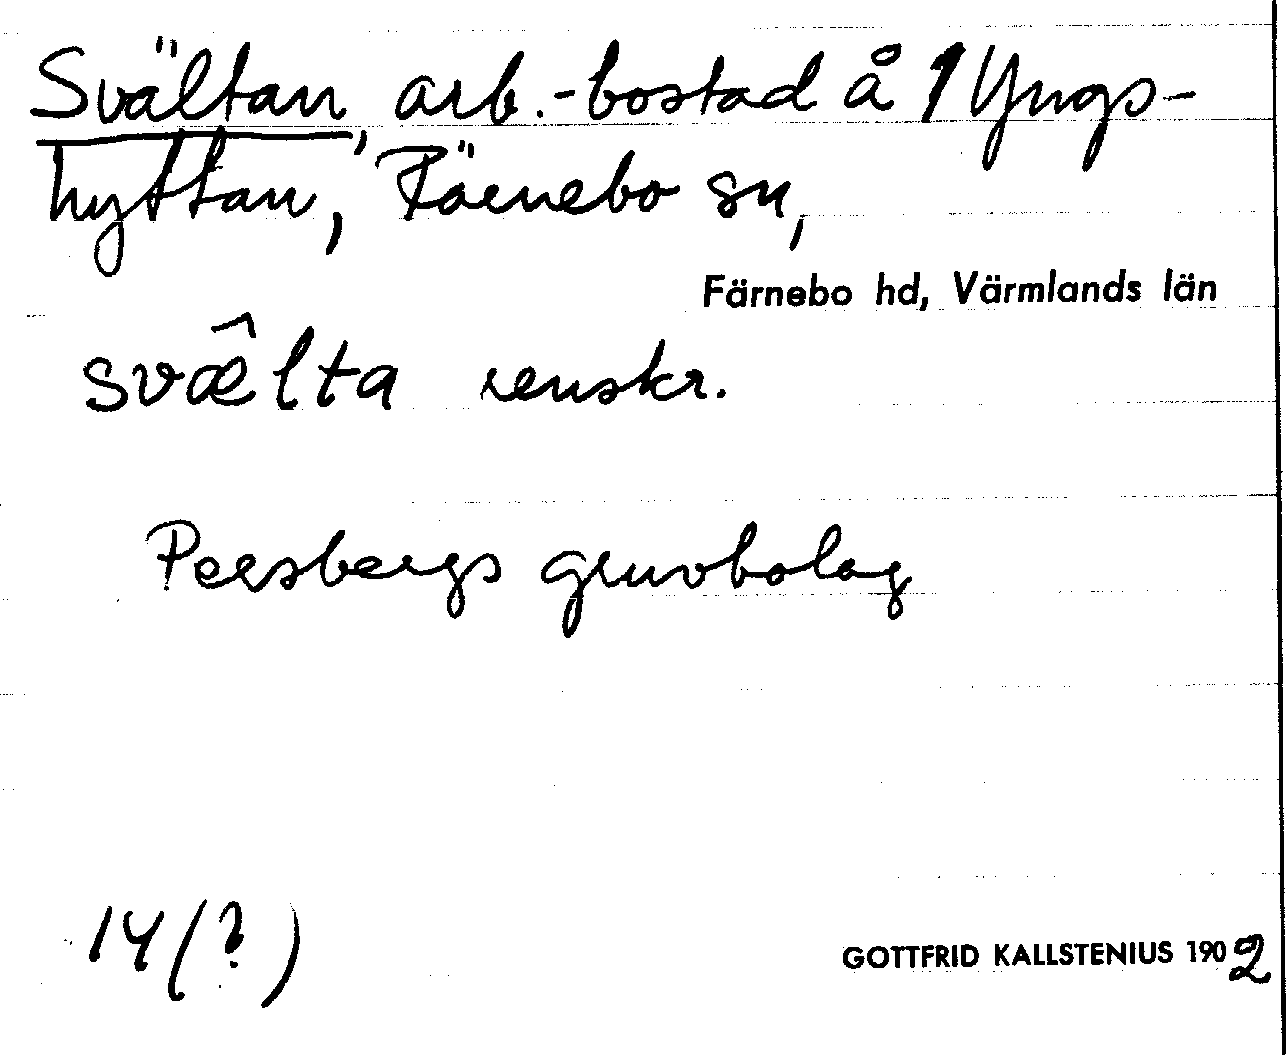 Svältan, arb.-bostad å 1 Yngs-
hyttan, Färnebo sn,
Färnebo hd, Värmlands län
svæ̂lta renskr.
Persbergs gruvbolag
14(?)
GOTTFRID KALLSTENIUS 1902